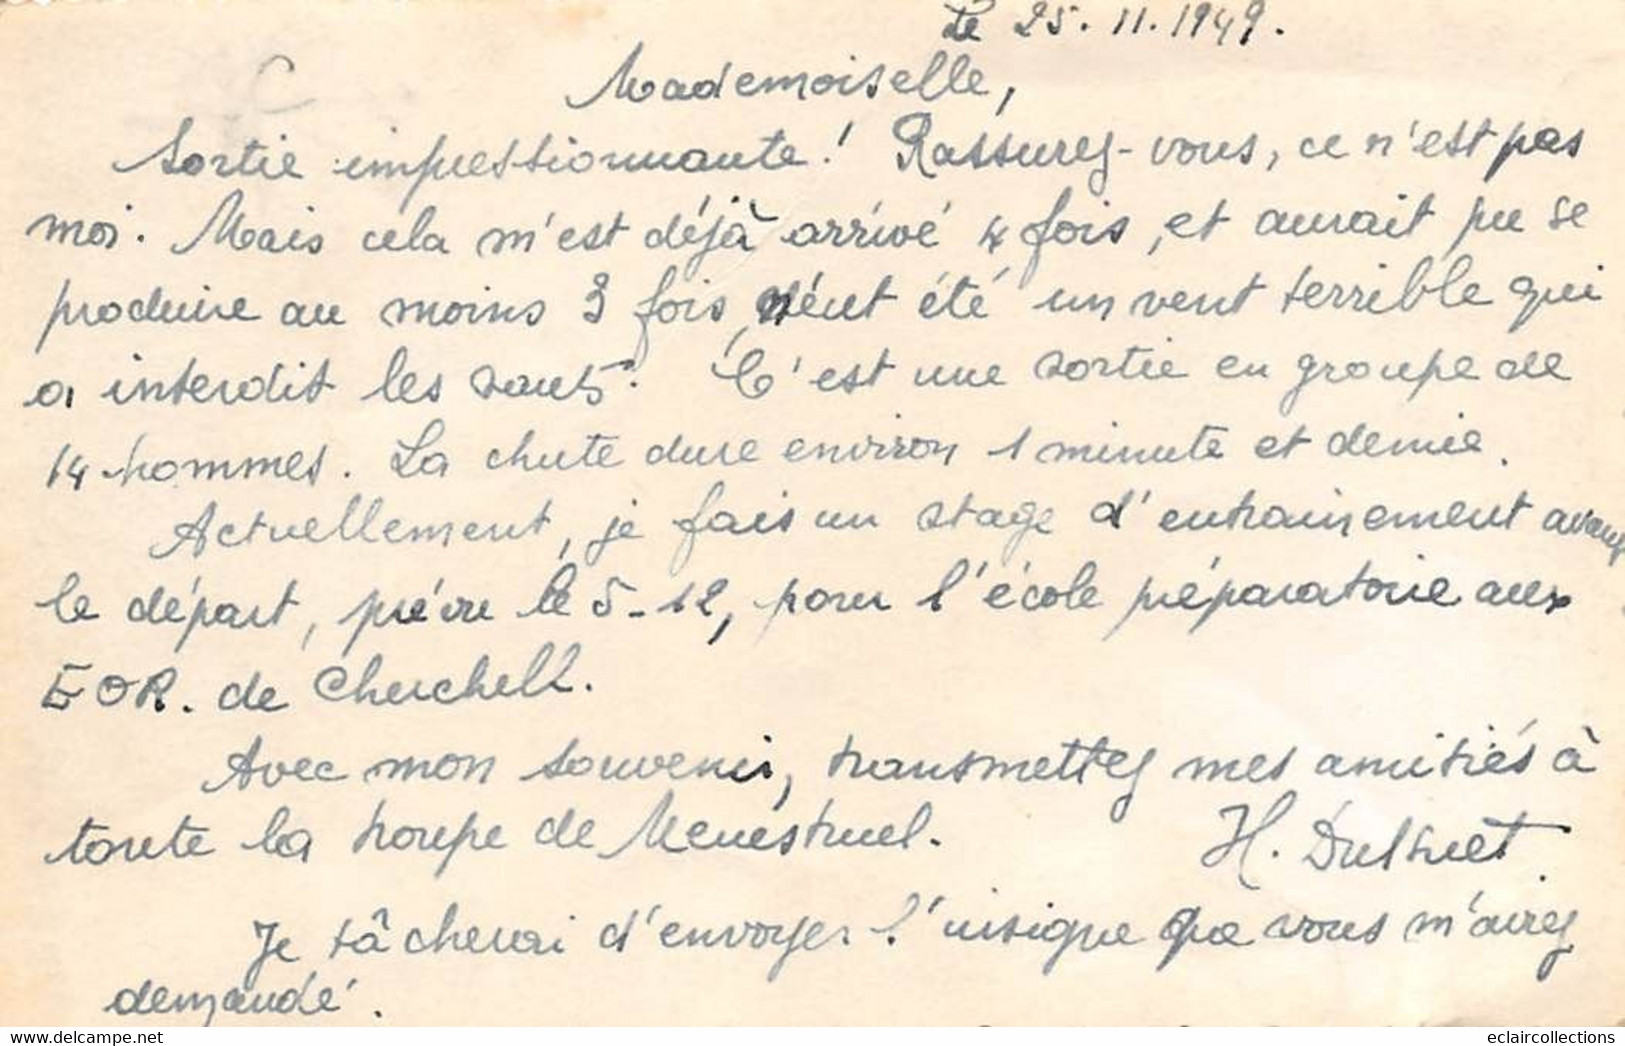 Le 25.11.1949.
Mademoiselle,
Sortie impressionnante! Rassurez-vous, ce n'est pas
moi. Mais cela m'est déjà arrivé 4 fois, et aurait pu se
produire au moins 3 fois, n'eut été un vent terrible qui
a interdit les sauts. C'est une sortie en groupe de
14 hommes. La chute dure environ 1 minute et demie.
Actuellement, je fais un stage d'entrainement avant
le départ, prévu le 5-12, pour l'école préparatoire aux
EOR. de Cherchell.
Avec mon souvenir, transmettez mes amitiés à
toute la troupe de Menestruel.
H.
Je tâcherai d'envoyer l'insigne que vous m'aviez
demandé.
eclaircollections